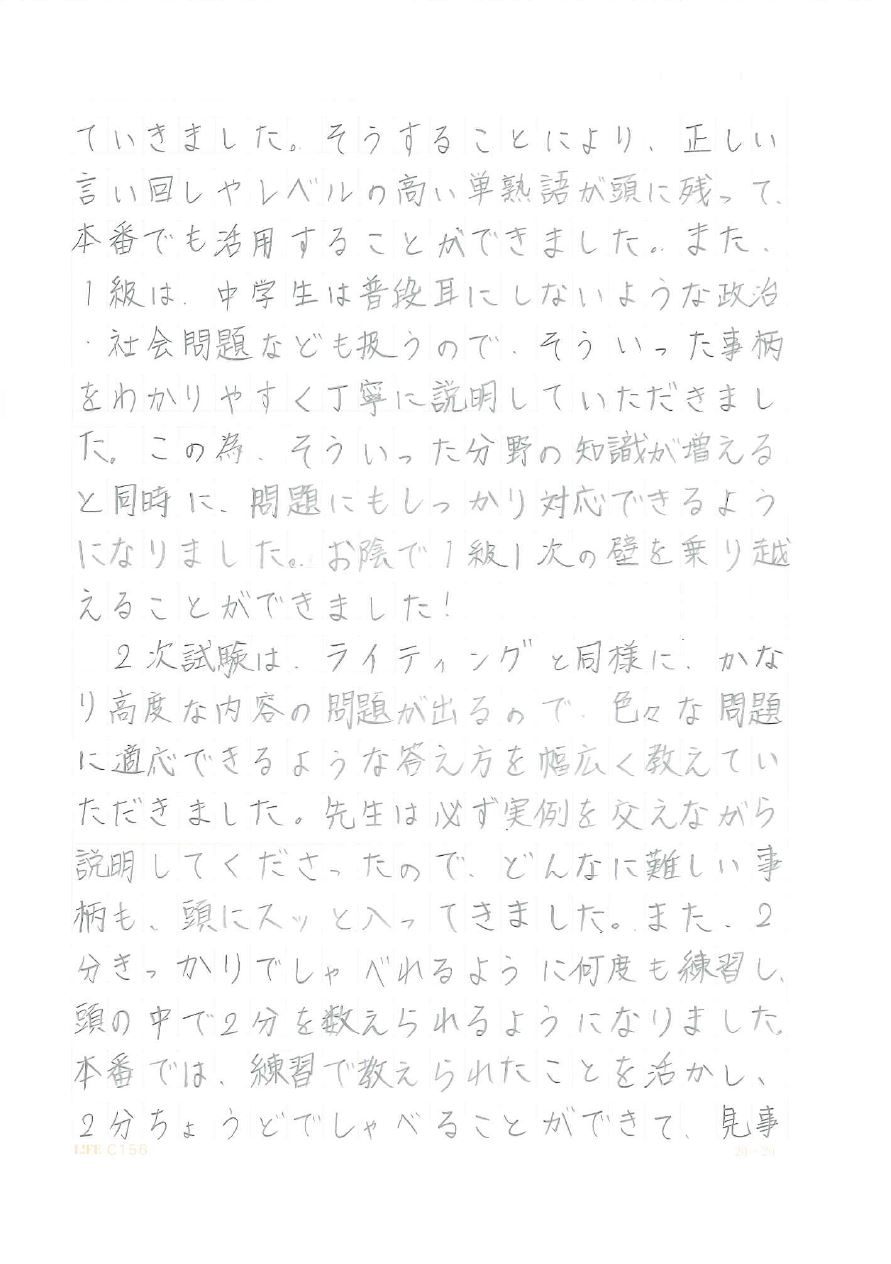 ていきました。そうすることにより、正しい
言い回しやレベルの高い単熟語が頭に残って、
本番でも活用することができました。また、
1級は、中学生は普段耳にしないような政治
・社会問題なども扱うので、そういった事柄
をわかりやすく丁寧に説明していただきまし
た。この為、そういった分野の知識が増える
と同時に、問題にもしっかり対応できるよう
になりました。お陰で1級1次の壁を乗り越
えることができました!
2次試験は、ライティングと同様に、かな
り高度な内容の問題が出るので、色々な問題
に適応できるような答え方を幅広く教えてい
ただきました。先生は必ず実例を交えながら
説明してくださったので、どんなに難しい事
柄も、頭にスッと入ってきました。また、2
分きっかりでしゃべれるように何度も練習し、
頭の中で2分を数えられるようになりました。
本番では、練習で教えられたことを活かし、
2分ちょうどでしゃべることができて、見事
LIFE C156 20×20